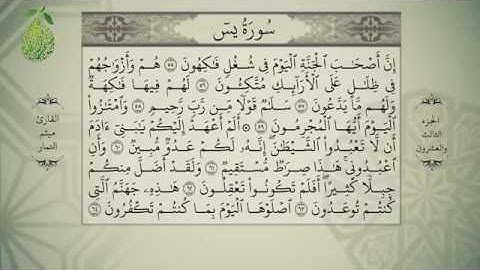 سُورَةُ يسٓ
إِنَّ أَصْحَٰبَ ٱلْجَنَّةِ ٱلْيَوْمَ فِى شُغُلٍ فَٰكِهُونَ ٥٥ هُمْ وَأَزْوَٰجُهُمْ
فِى ظِلَٰلٍ عَلَى ٱلْأَرَآئِكِ مُتَّكِـُٔونَ ٥٦ لَهُمْ فِيهَا فَٰكِهَةٌ
وَلَهُم مَّا يَدَّعُونَ ٥٧ سَلَٰمٌ قَوْلًا مِّن رَّبٍّ رَّحِيمٍ ٥٨ وَٱمْتَٰزُوا۟
ٱلْيَوْمَ أَيُّهَا ٱلْمُجْرِمُونَ ٥٩ أَلَمْ أَعْهَدْ إِلَيْكُمْ يَٰبَنِىٓ ءَادَمَ
أَن لَّا تَعْبُدُوا۟ ٱلشَّيْطَٰنَ إِنَّهُۥ لَكُمْ عَدُوٌّ مُّبِينٌ ٦٠ وَأَنِ
ٱعْبُدُونِى هَٰذَا صِرَٰطٌ مُّسْتَقِيمٌ ٦١ وَلَقَدْ أَضَلَّ مِنكُمْ
جِبِلًّا كَثِيرًا أَفَلَمْ تَكُونُوا۟ تَعْقِلُونَ ٦٢ هَٰذِهِۦ جَهَنَّمُ ٱلَّتِى
كُنتُمْ تُوعَدُونَ ٦٣ ٱصْلَوْهَا ٱلْيَوْمَ بِمَا كُنتُمْ تَكْفُرُونَ ٦٤
الجزء
الثالث
والعشرون
القارئ
ميثم
التمار